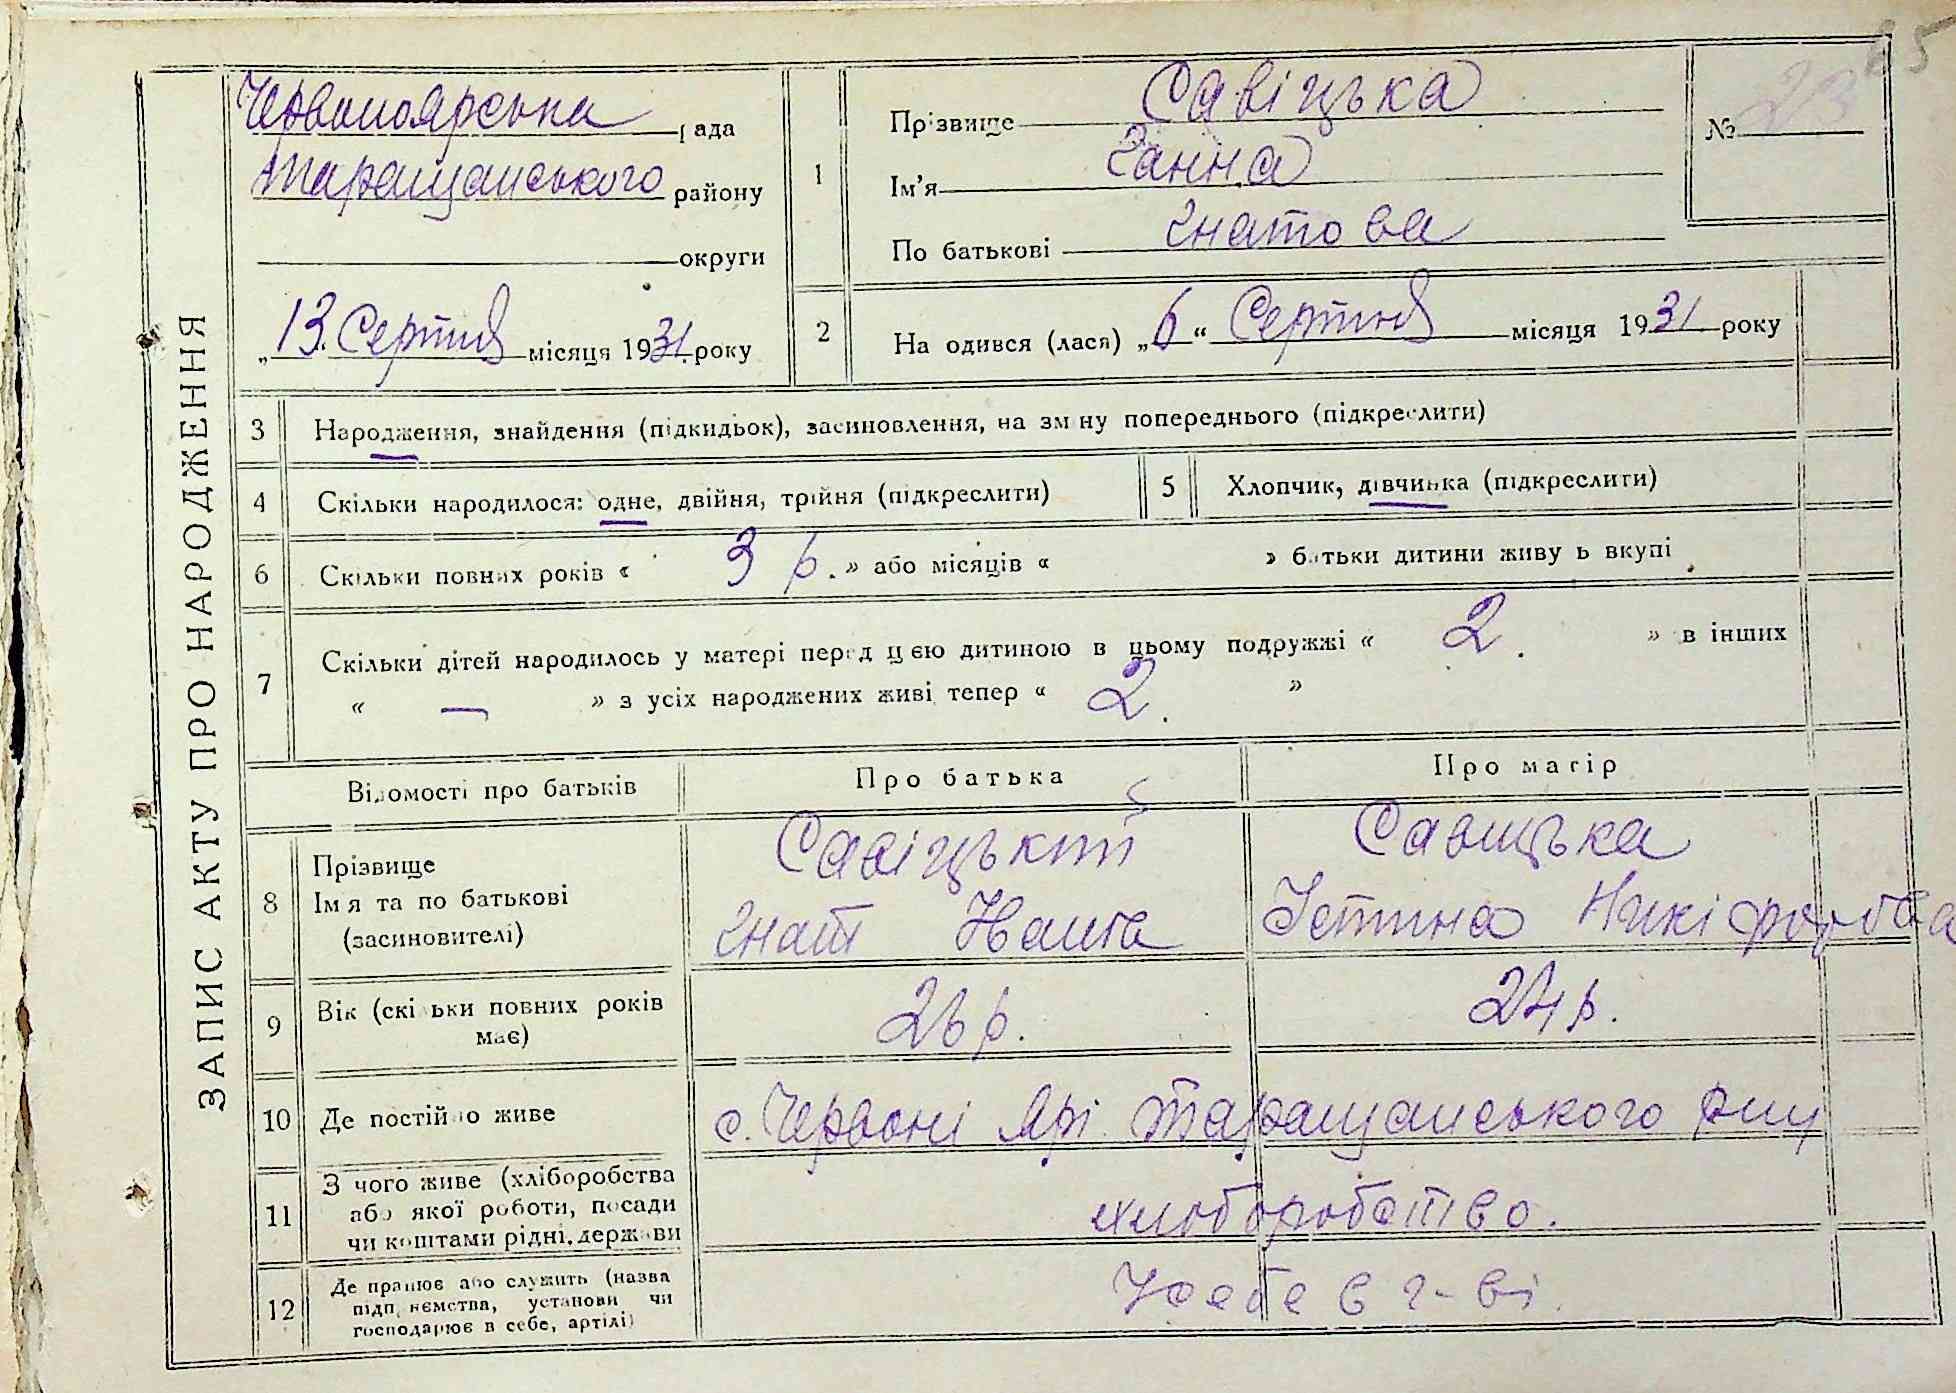 65
ЗАПИС АКТУ ПРО НАРОДЖЕННЯ
Червоноярська рада
Таращанського району
округи
„13. Серпня місяця 1931 року
1
Прізвище Савіцька
Ім'я Ганна
По батькові Гнатова
№ 23
2
Народився (лася) „6“ Серпня місяця 1931 року
3 Народження, знайдення (підкидьок), засиновлення, на зміну попереднього (підкреслити)
4 Скільки народилося: одне, двійня, трійня (підкреслити)
5 Хлопчик, дівчинка (підкреслити)
6 Скільки повних років « 3 р. » або місяців « » батьки дитини живуть вкупі
7 Скільки дітей народилось у матері перед цією дитиною в цьому подружжі « 2. » в інших
« — » з усіх народжених живі тепер « 2. »
Відомості про батьків
Про батька
Про матір
8
Прізвище
Ім'я та по батькові
(засиновителі)
Савіцький
Гнат
Савицька
Устина Никіфорова
9 Вік (скільки повних років
має)
26 р.
24 р.
10 Де постійно живе
с. Червоні Ярі Таращанського
11
З чого живе (хліборобства
або якої роботи, посади
чи коштами рідні, держави
хліборобство.
12
Де працює або служить (назва
підприємства, установи чи
господарює в себе, артілі)
У себе в г-ві.